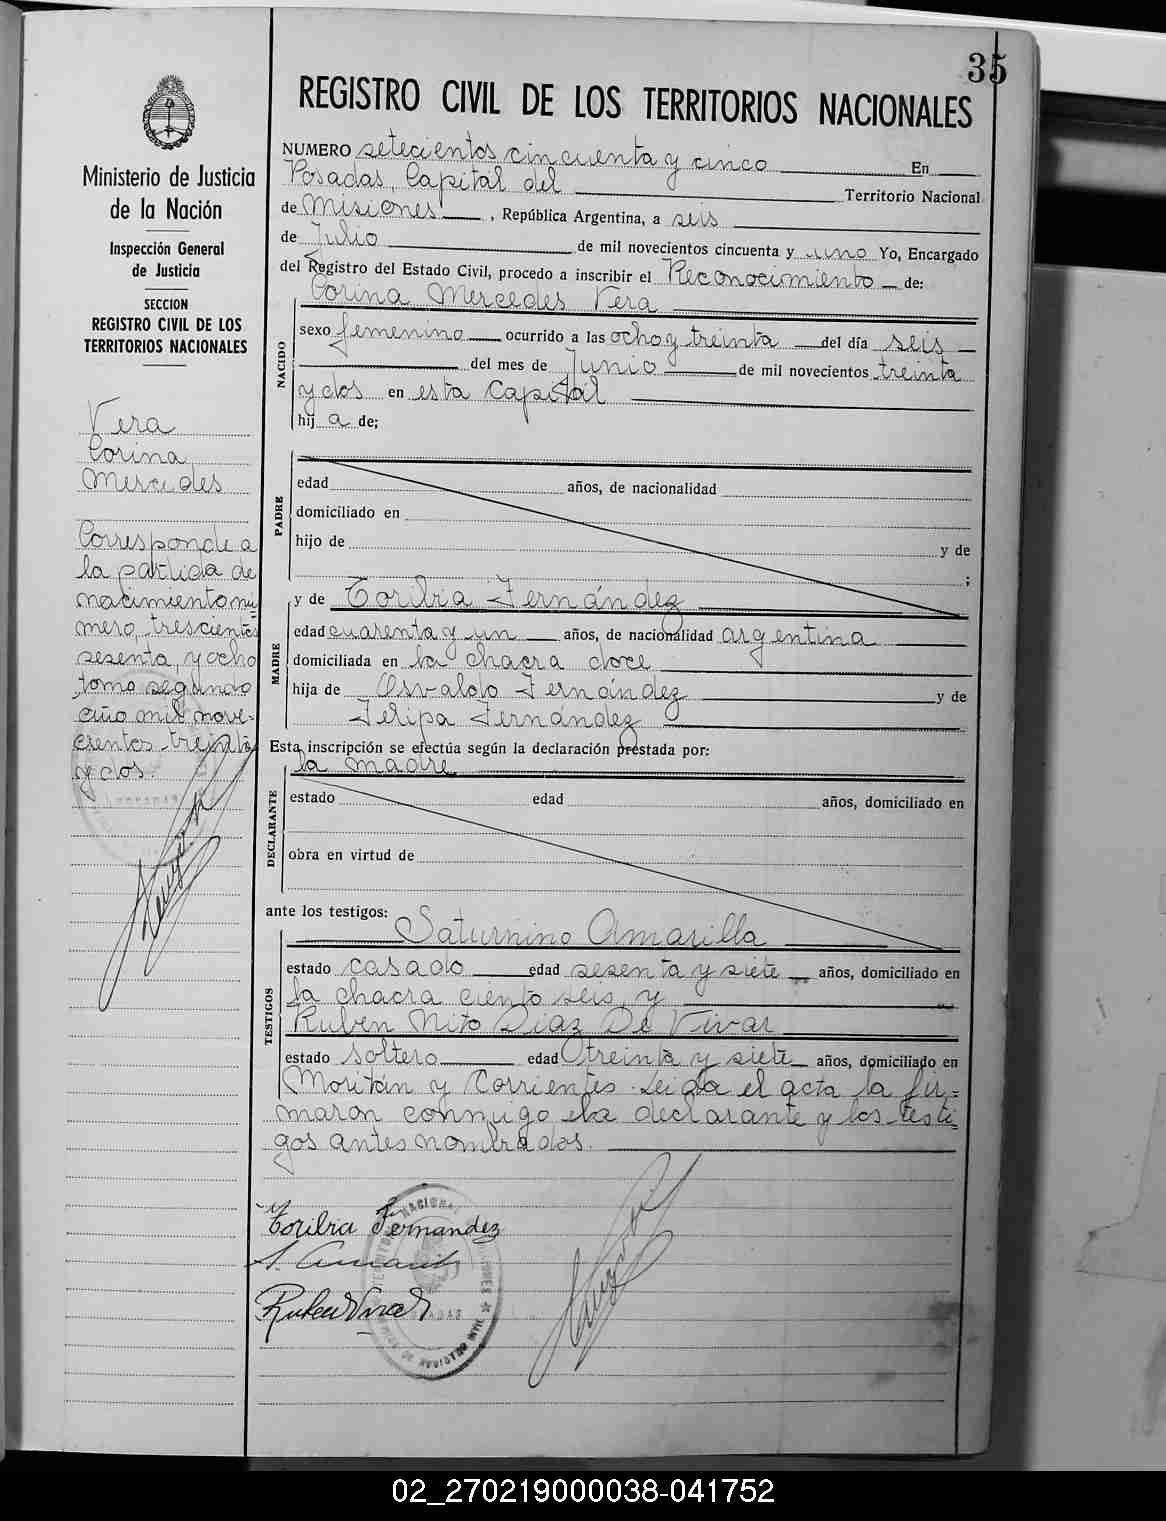 35
REGISTRO CIVIL DE LOS TERRITORIOS NACIONALES
Ministerio de Justicia
de la Nación
Inspección General
de Justicia
SECCION
REGISTRO CIVIL DE LOS
TERRITORIOS NACIONALES
Vera
Corina
Mercedes
Corresponde a
la partida de
nacimiento nu
mero, trescientos
sesenta y ocho
tomo segundo
año mil nove-
cientos treinta
y dos.
NUMERO setecientos cincuenta y cinco En
Posadas, Capital del Territorio Nacional
de Misiones, República Argentina, a seis
de Julio de mil novecientos cincuenta y uno Yo, Encargado
del Registro del Estado Civil, procedo a inscribir el Reconocimiento de:
Corina Mercedes Vera
NACIDO
sexo femenino ocurrido a las ocho y treinta del día seis
del mes de Junio de mil novecientos treinta
y dos en esta Capital
hij a de;
PADRE
edad años, de nacionalidad
domiciliado en
hijo de y de
;
y de Toribia Fernández
MADRE
edad cuarenta y un años, de nacionalidad argentina
domiciliada en la chacra doce
hija de Osvaldo Fernández y de
Felipa Fernández
Esta inscripción se efectúa según la declaración prestada por:
la madre
DECLARANTE
estado edad años, domiciliado en
obra en virtud de
ante los testigos:
Saturnino Amarilla
TESTIGOS
estado casado edad sesenta y siete años, domiciliado en
la chacra ciento seis, y
Ruben Nito Diaz De Vivar
estado soltero edad treinta y siete años, domiciliado en
Moritán y Corrientes. Leida el acta la fir=
maron conmigo la declarante y los testi
gos antes nombrados.
Toribia Fernandez
S. Amarilla
Ruben Vivar
02_270219000038-041752